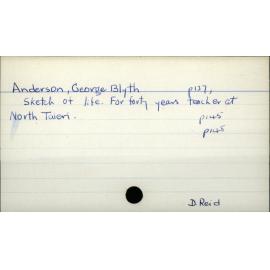 Anderson, George Blyth p137,
Sketch of life. For forty years teacher at
North Taieri. p145
p145
D. Reid